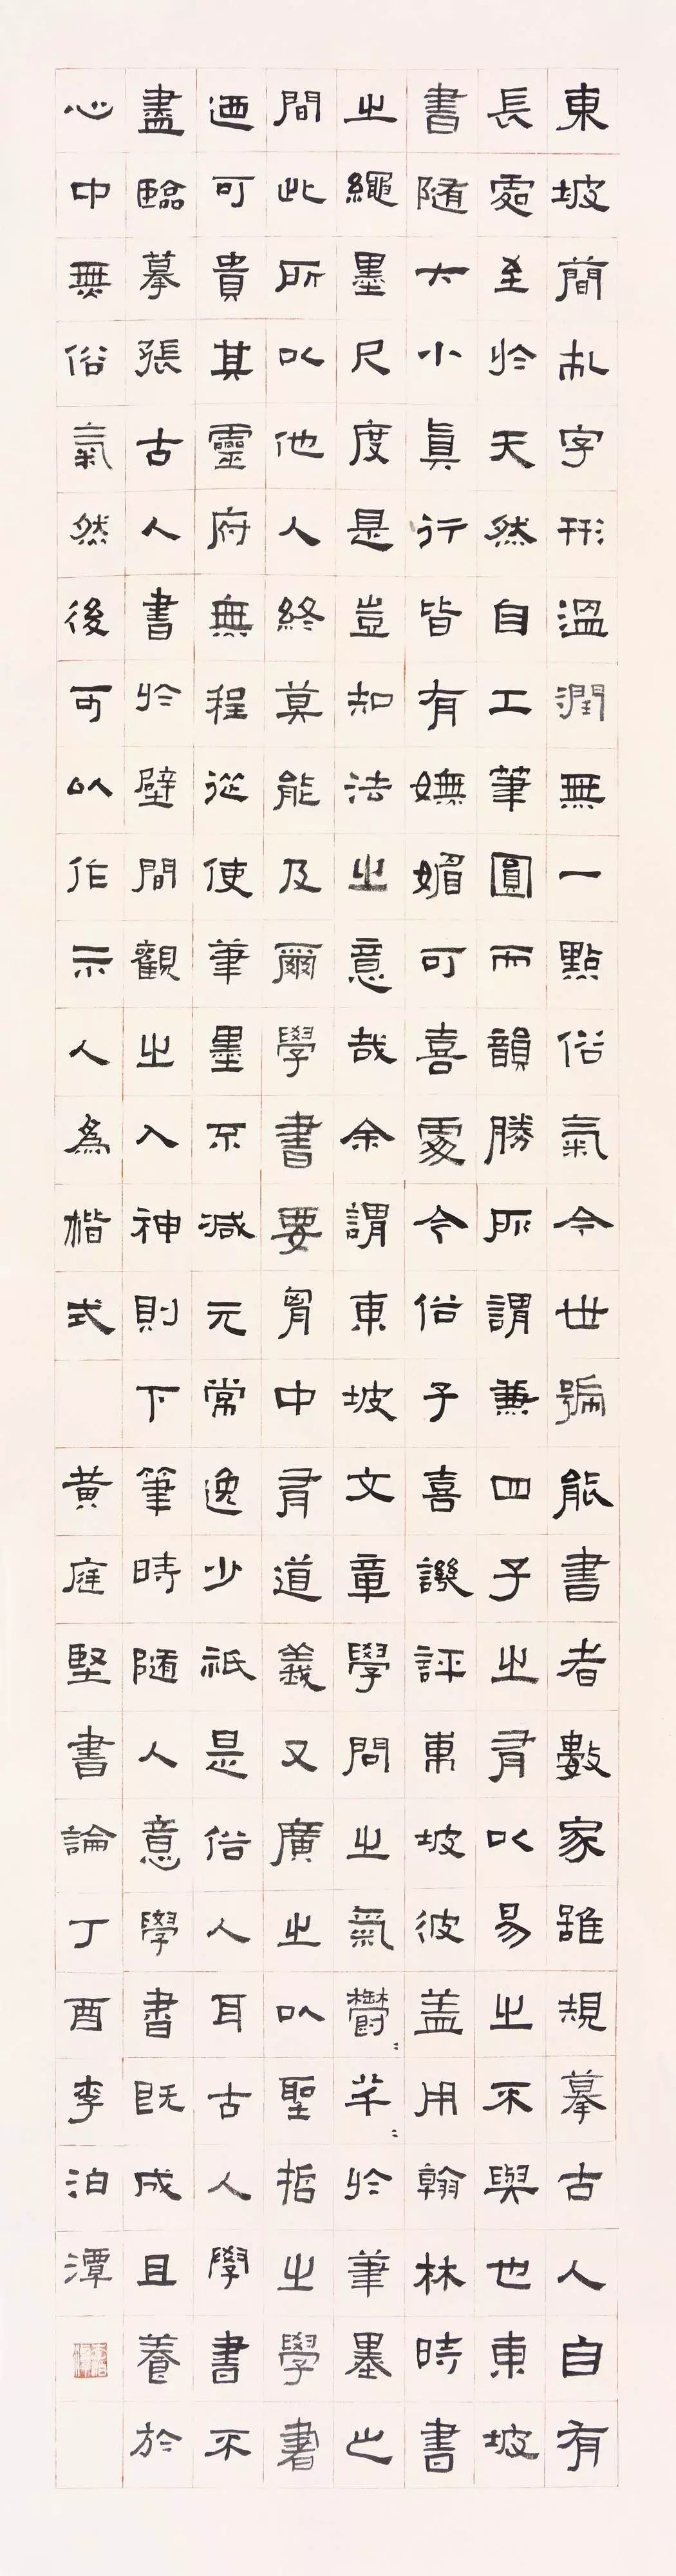 東坡簡札字形溫潤無一點俗氣今世號能書者數家雖規摹古人自有
長處至於天然自工筆圓而韻勝所謂兼四子之有以易之不與也東坡
書隨大小真行皆有嫵媚可喜處今俗子喜譏評東坡彼盖用翰林時書
之繩墨尺度是豈知法之意哉余謂東坡文章學問之氣鬱〻芊〻於筆墨之
間此所以他人終莫能及爾學書要胷中有道義又廣之以聖哲之學書
迺可貴其靈府無程從使筆墨不減元常逸少祇是俗人耳古人學書不
盡臨摹張古人書於壁間觀之入神則下筆時隨人意學書既成且養於
心中無俗氣然後可以作示人為楷式 黃庭堅書論丁酉李泊潭